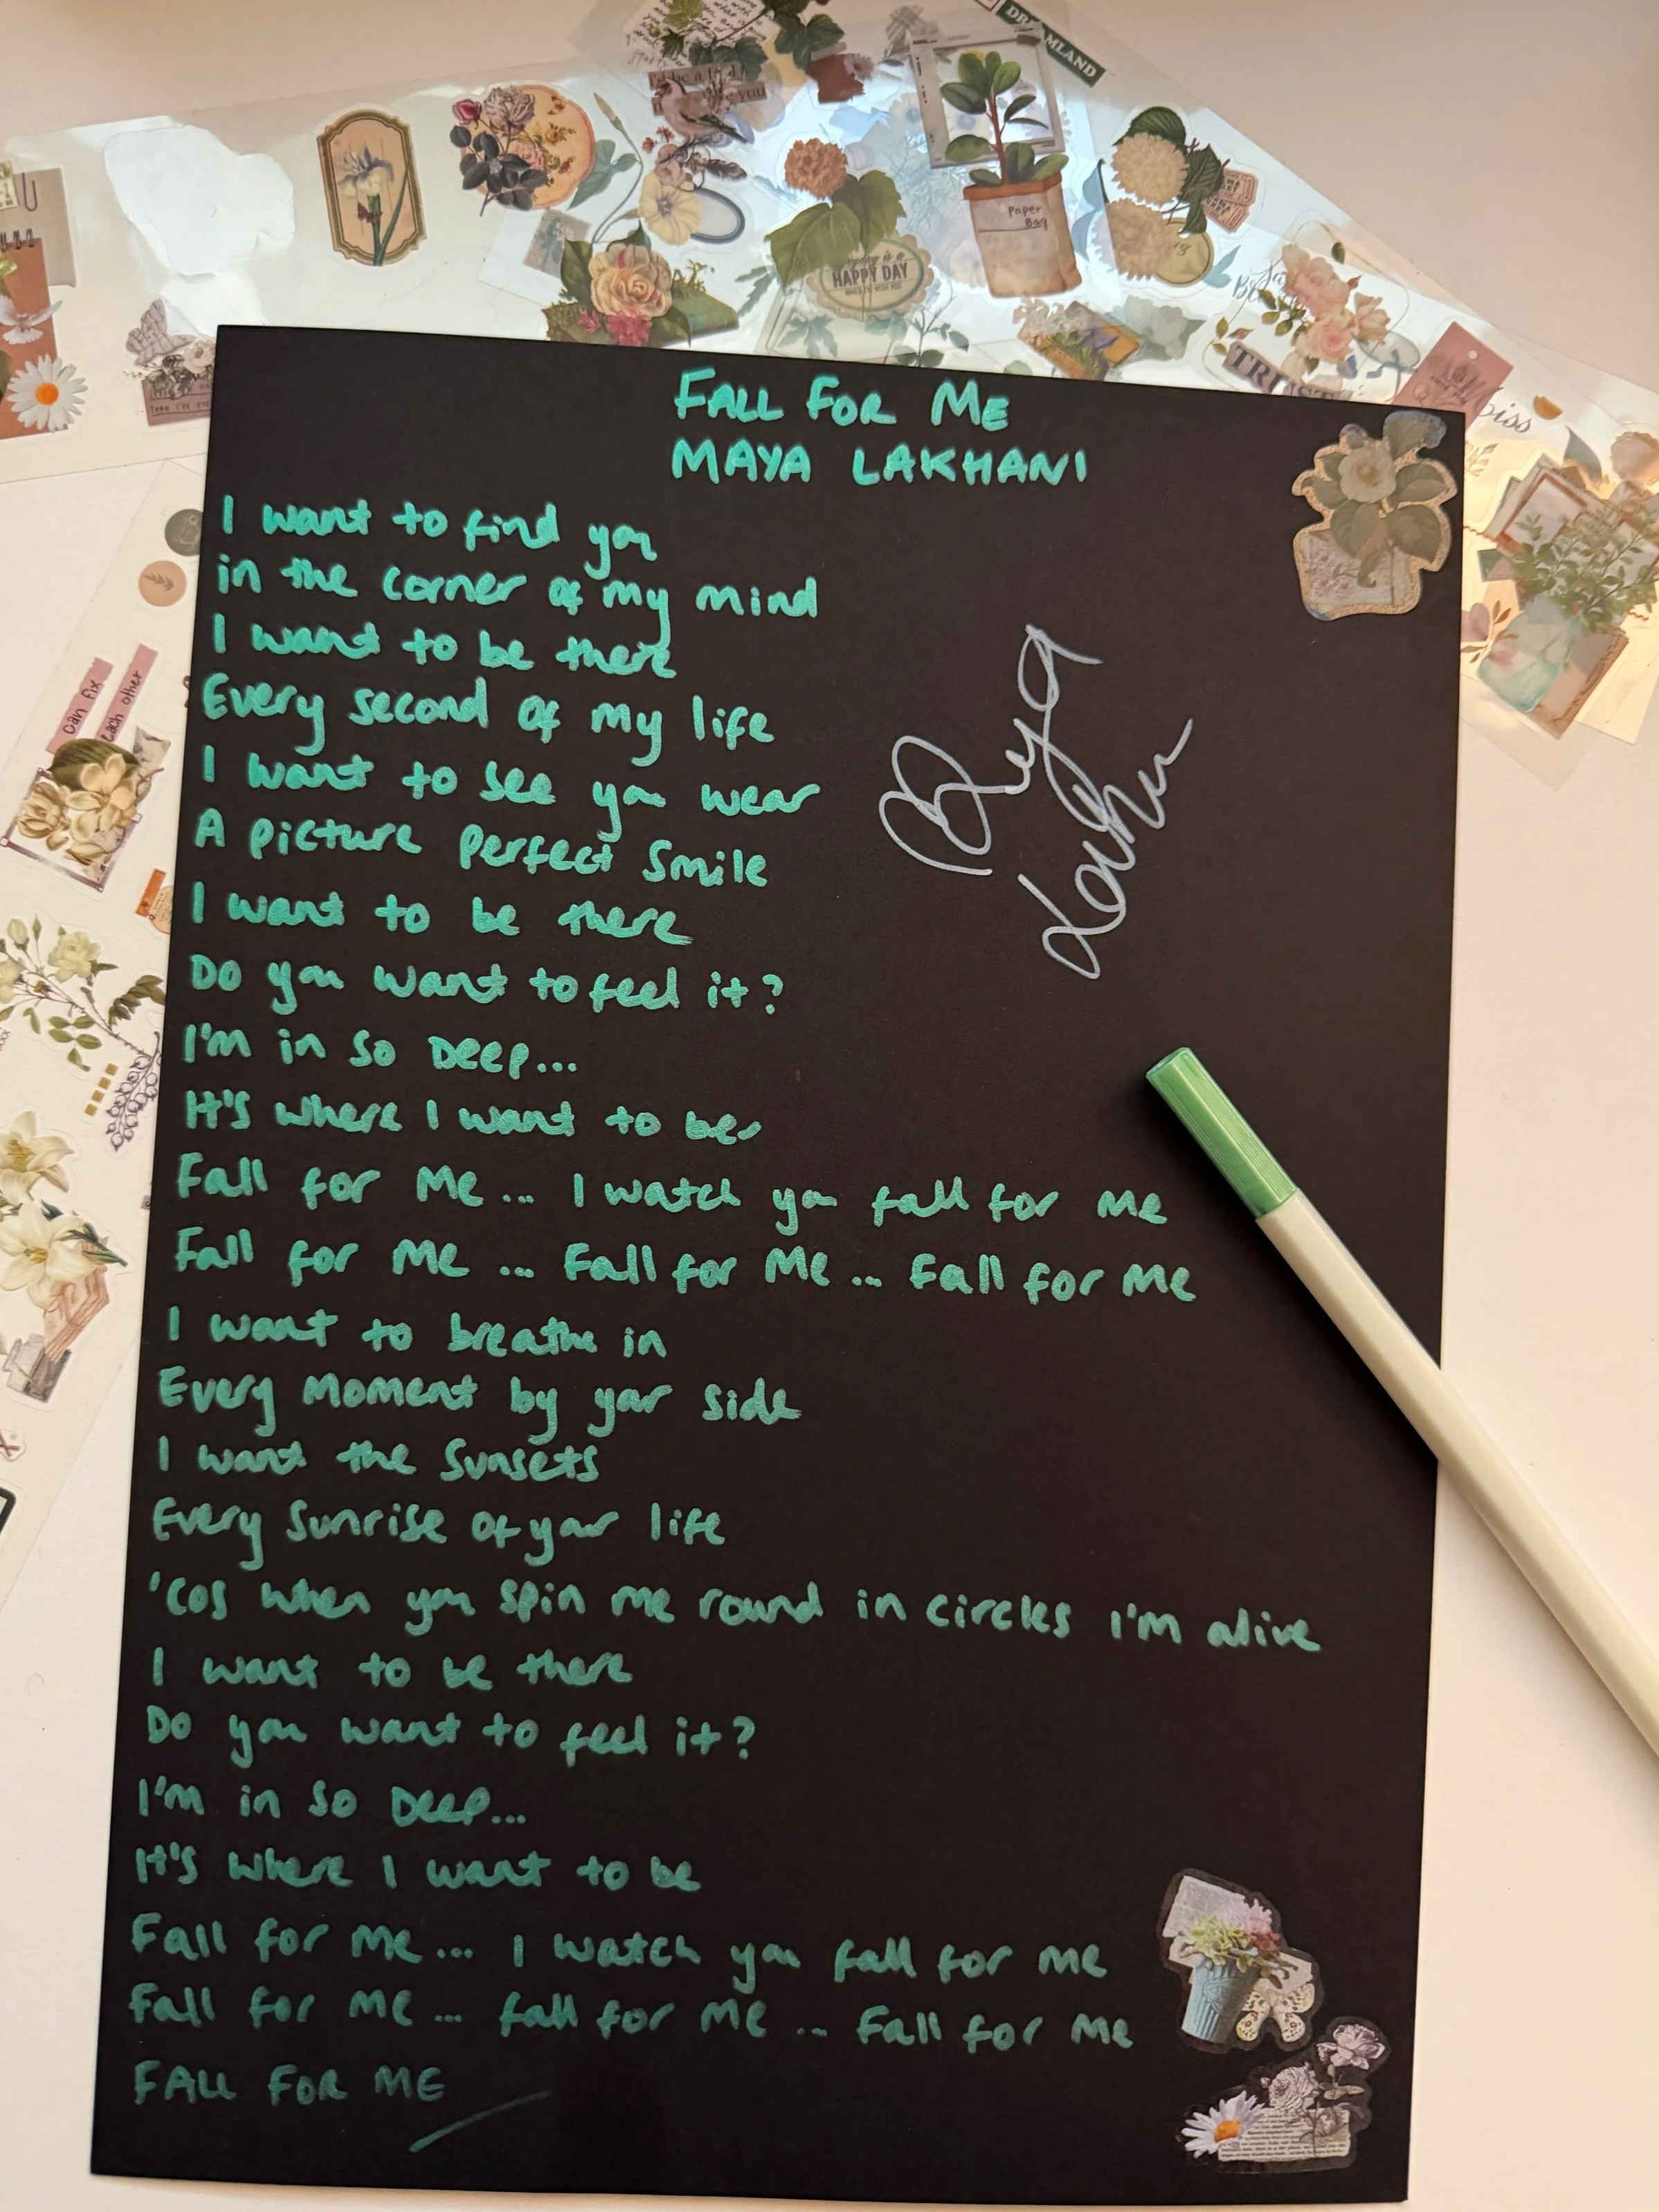 DREAMLAND
Paper
Bag
HAPPY DAY
can fix
each other
FALL FOR ME
MAYA LAKHANI
I want to find you
in the corner of my mind
I want to be there
Every second of my life
I want to see you wear
A picture perfect smile
I want to be there
Do you want to feel it?
I'm in so DEEP...
It's where I want to be
Fall for Me... I watch you fall for me
Fall for Me... Fall for Me... Fall for Me
I want to breathe in
Every Moment by your side
I want the Sunsets
Every Sunrise of your life
'Cos when you spin me round in circles I'm alive
I want to be there
Do you want to feel it?
I'm in so Deep...
It's where I want to be
Fall for me... I watch you fall for me
Fall for me... fall for me... Fall for me
FALL FOR ME